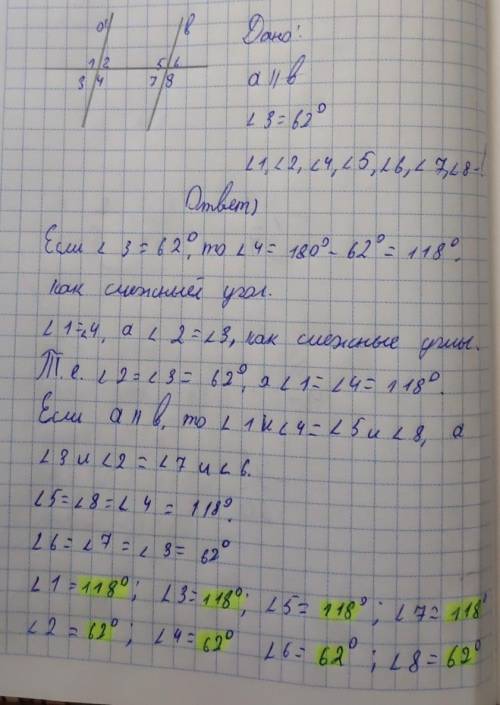 a
в
1 2
5 6
3 4
7 8
Дано:
a || в
∠3 = 62°
∠1, ∠2, ∠4, ∠5, ∠6, ∠7, ∠8 -
Ответ,
Если ∠3 = 62°, то ∠4 = 180° - 62° = 118°,
как смежный угол.
∠1=∠4, а ∠2=∠3, как смежные углы.
Т.е. ∠2=∠3= 62°, а ∠1=∠4= 118°.
Если a || в, то ∠1 и ∠4 = ∠5 и ∠8, а
∠3 и ∠2 = ∠7 и ∠6.
∠5=∠8=∠4 = 118°.
∠6=∠7=∠3= 62°
∠1=118°; ∠3=118°; ∠5= 118°; ∠7= 118°
∠2= 62°; ∠4= 62° ∠6= 62°; ∠8= 62°